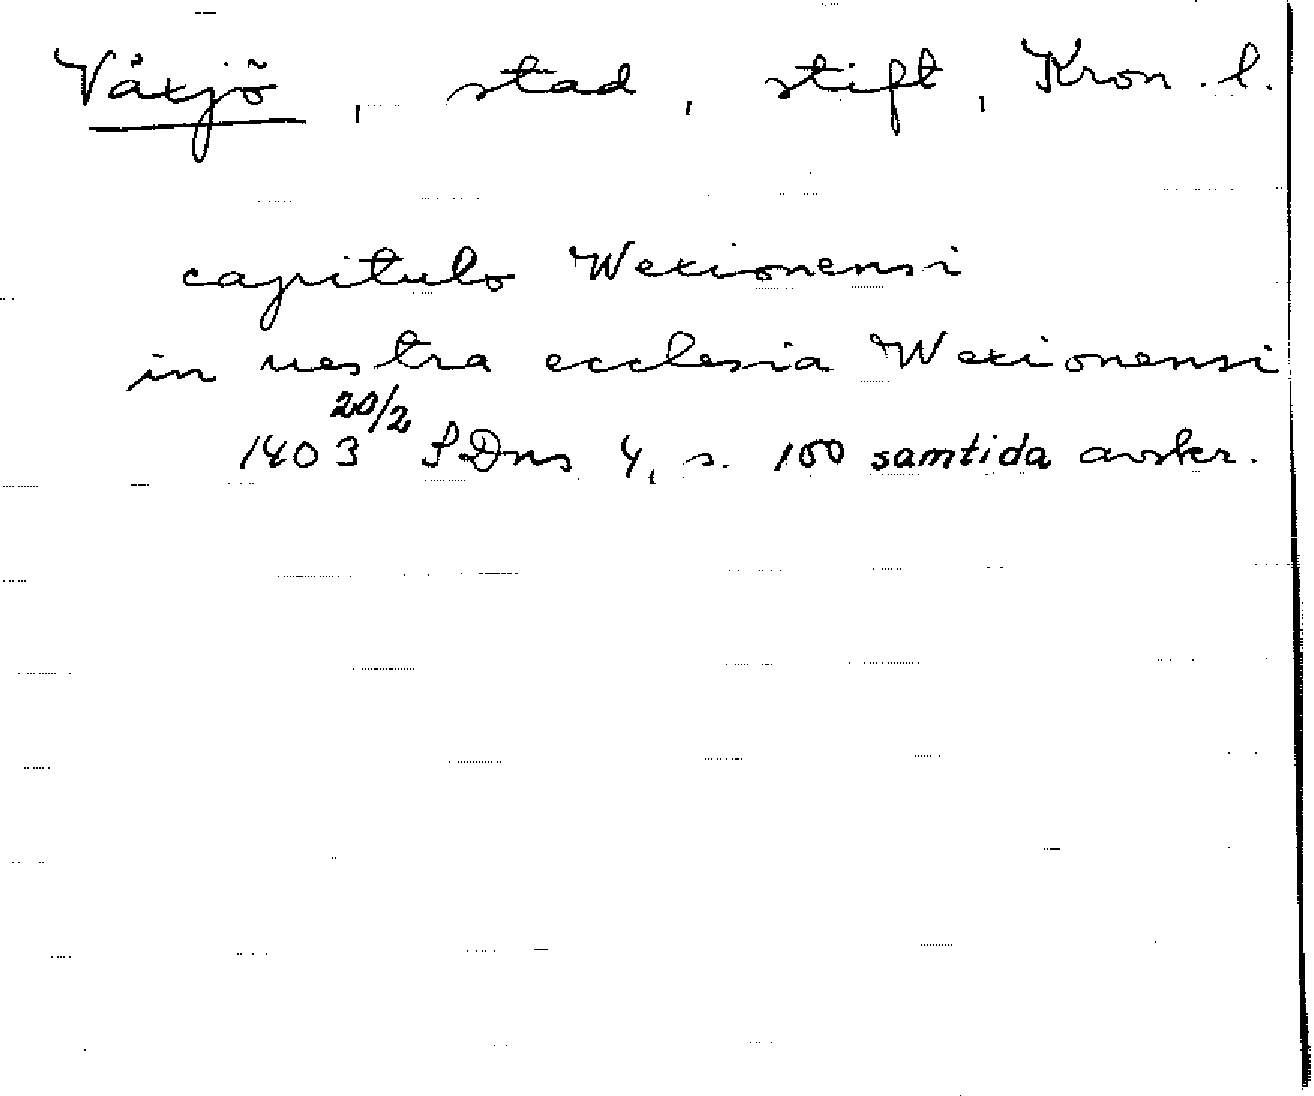 Växjö, stad, stift, Kron. l.
capitulo Wexionensi
in uestra ecclesia Wexionensi
20/2
1403 SDns 4, s. 100 samtida avskr.